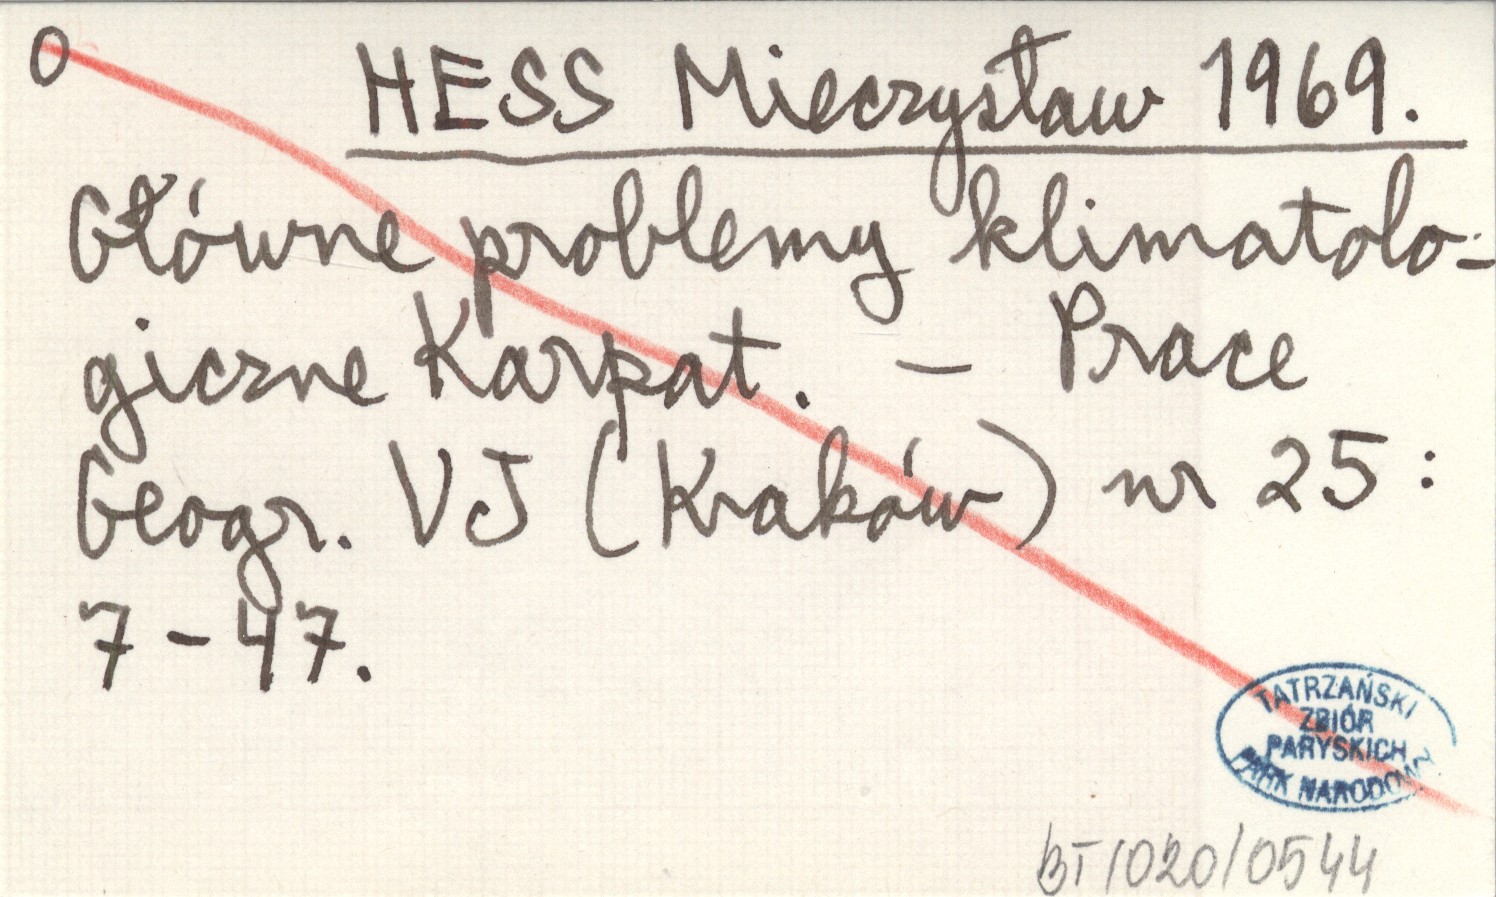 O
HESS Mieczysław 1969.
Główne problemy klimatolo-
giczne Karpat. – Prace
Geogr. UJ (Kraków) nr 25:
7-47.
TATRZAŃSKI
ZBIÓR
PARYSKICH
PARK NARODOWY
BT/020/0544